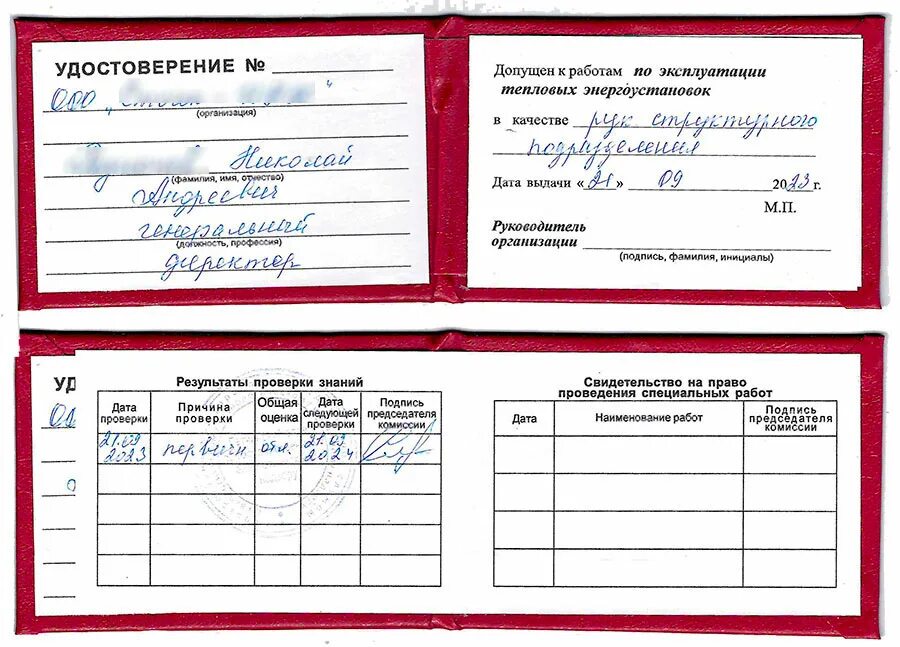 УДОСТОВЕРЕНИЕ №
ООО „ "
(организация)
Николай
(фамилия, имя, отчество)
Андреевич
генеральный
(должность, профессия)
директор
Допущен к работам по эксплуатации
тепловых энергоустановок
в качестве рук структурного
подразделения
Дата выдачи « 21 » 09 2023 г.
М.П.
Руководитель
организации
(подпись, фамилия, инициалы)
УД
Результаты проверки знаний
Дата проверки Причина проверки Общая оценка Дата следующей проверки Подпись председателя комиссии
21.09 2023 первичн отл. 21.09 2024
Свидетельство на право
проведения специальных работ
Дата Наименование работ Подпись председателя комиссии